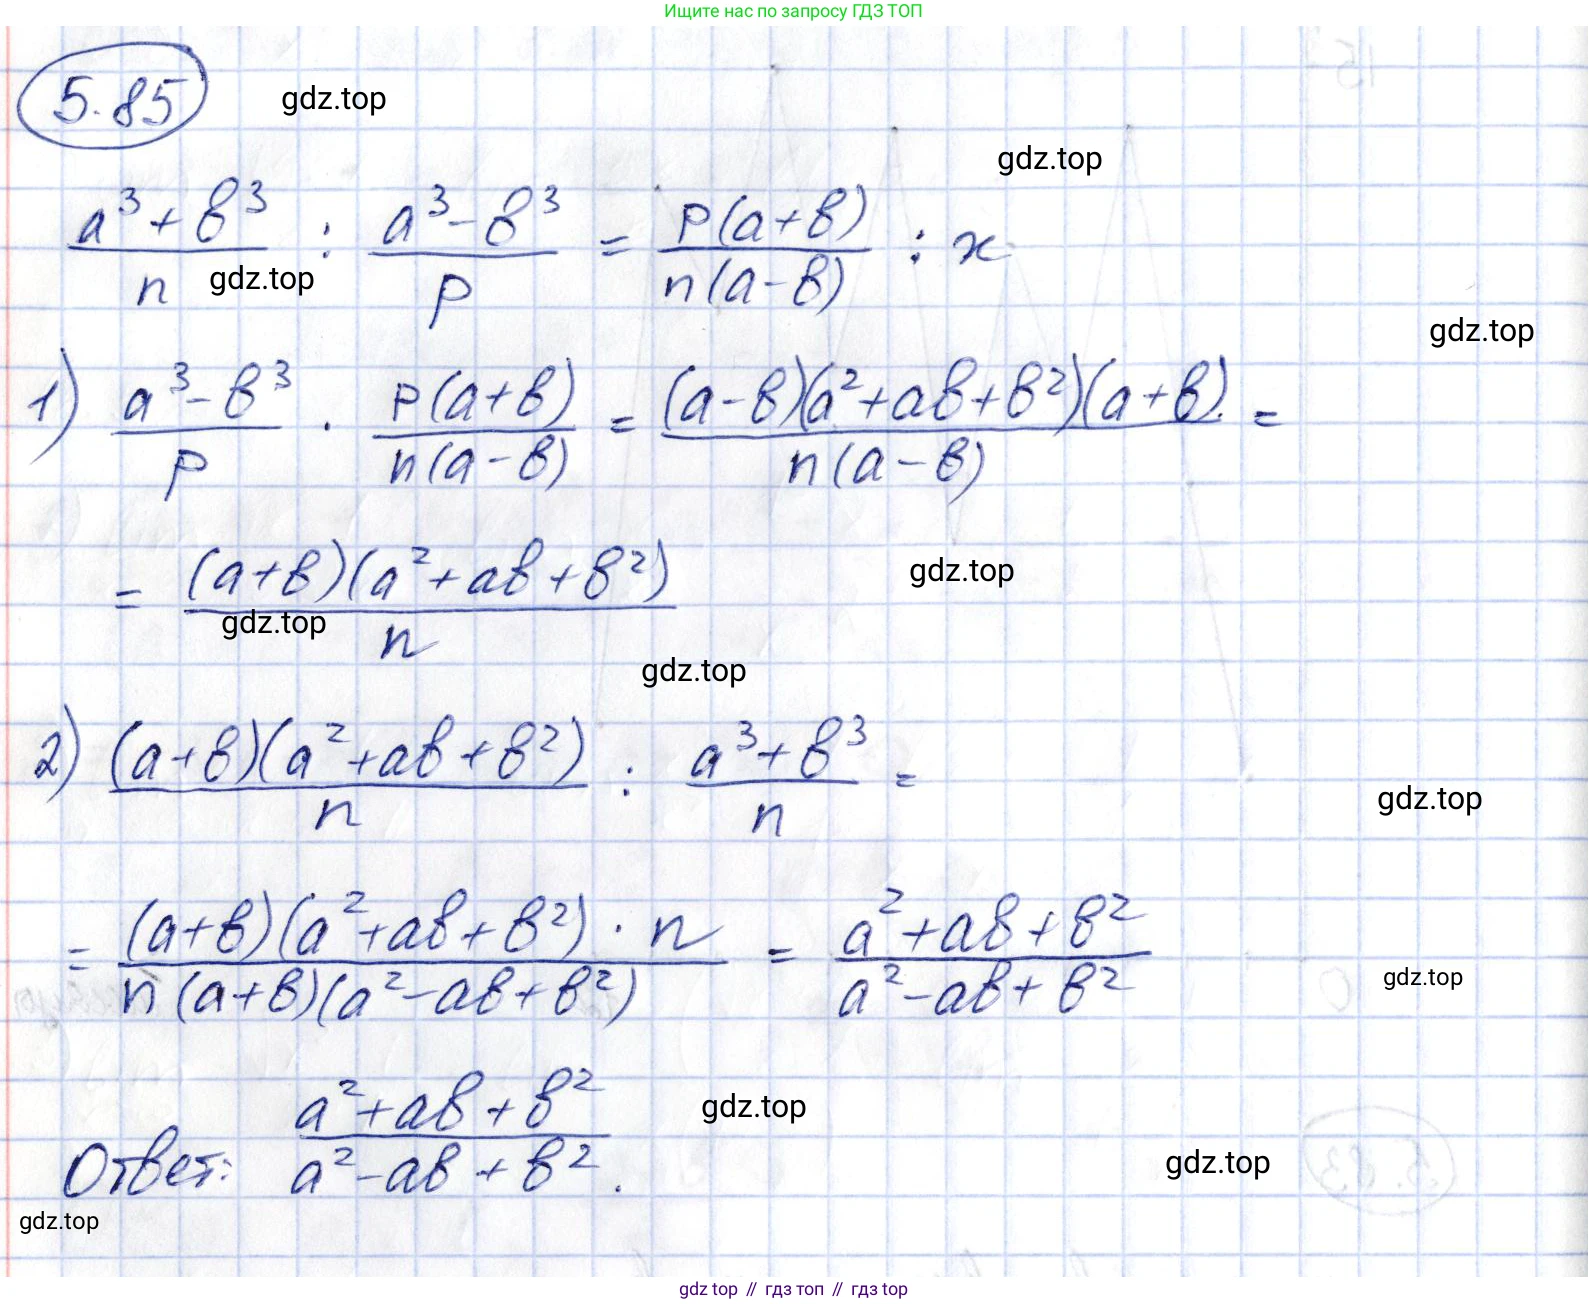 Ищите нас по запросу ГДЗ ТОП
5.85
gdz.top
gdz.top
(a³ + в³)/n : (a³ - в³)/p = p(a+в)/n(a-в) : x
gdz.top
gdz.top
1) (a³ - в³)/p · p(a+в)/n(a-в) = (a-в)(a²+aв+в²)(a+в)/n(a-в) =
= (a+в)(a²+aв+в²)/n
gdz.top
gdz.top
gdz.top
2) (a+в)(a²+aв+в²)/n : (a³+в³)/n =
gdz.top
= (a+в)(a²+aв+в²)·n/n(a+в)(a²-aв+в²) = (a²+aв+в²)/(a²-aв+в²)
gdz.top
Ответ: (a²+aв+в²)/(a²-aв+в²).
gdz.top
gdz.top
gdz.top
gdz top // гдз топ // гдз top